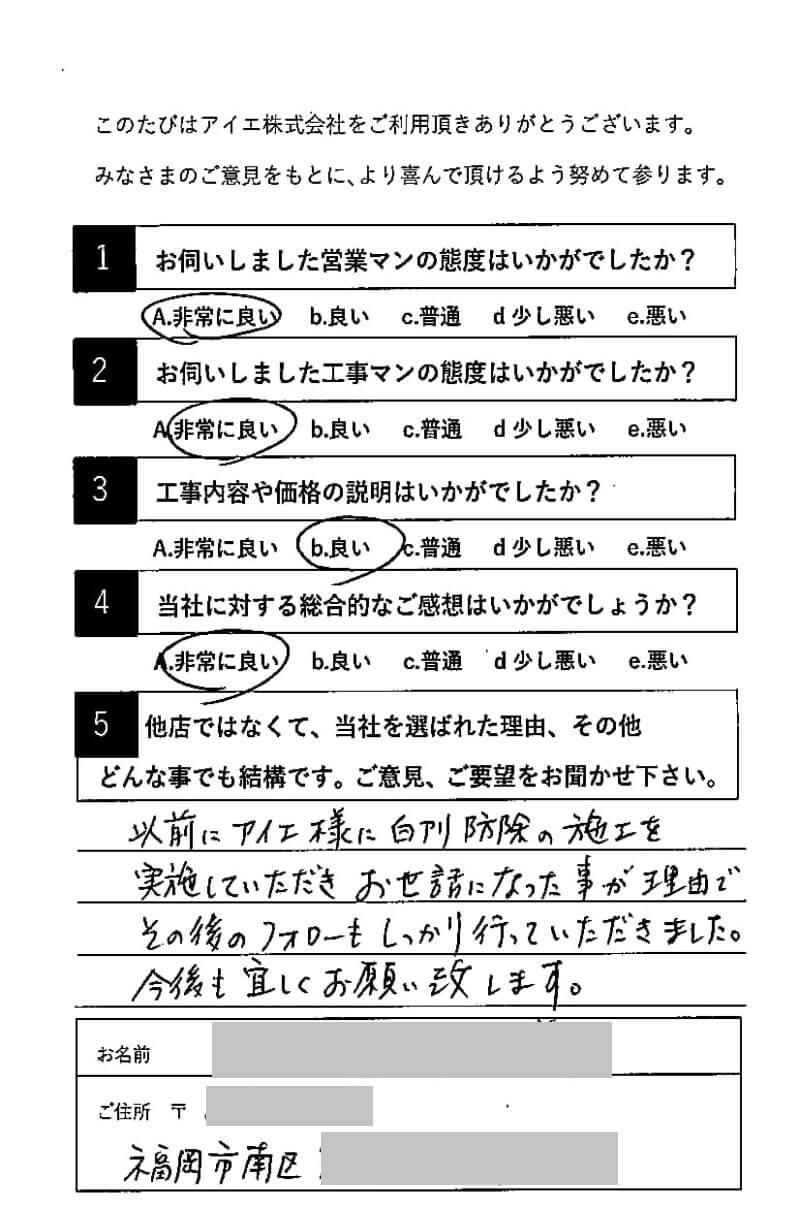 このたびはアイエ株式会社をご利用頂きありがとうございます。
みなさまのご意見をもとに、より喜んで頂けるよう努めて参ります。
1 お伺いしました営業マンの態度はいかがでしたか？
A.非常に良い b.良い c.普通 d少し悪い e.悪い
2 お伺いしました工事マンの態度はいかがでしたか？
A.非常に良い b.良い c.普通 d少し悪い e.悪い
3 工事内容や価格の説明はいかがでしたか？
A.非常に良い b.良い c.普通 d少し悪い e.悪い
4 当社に対する総合的なご感想はいかがでしょうか？
A.非常に良い b.良い c.普通 d少し悪い e.悪い
5 他店ではなくて、当社を選ばれた理由、その他
どんな事でも結構です。ご意見、ご要望をお聞かせ下さい。
以前にアイエ様に白アリ防除の施工を
実施していただきお世話になった事が理由で
その後のフォローもしっかり行っていただきました。
今後も宜しくお願い致します。
お名前
ご住所 〒
福岡市南区